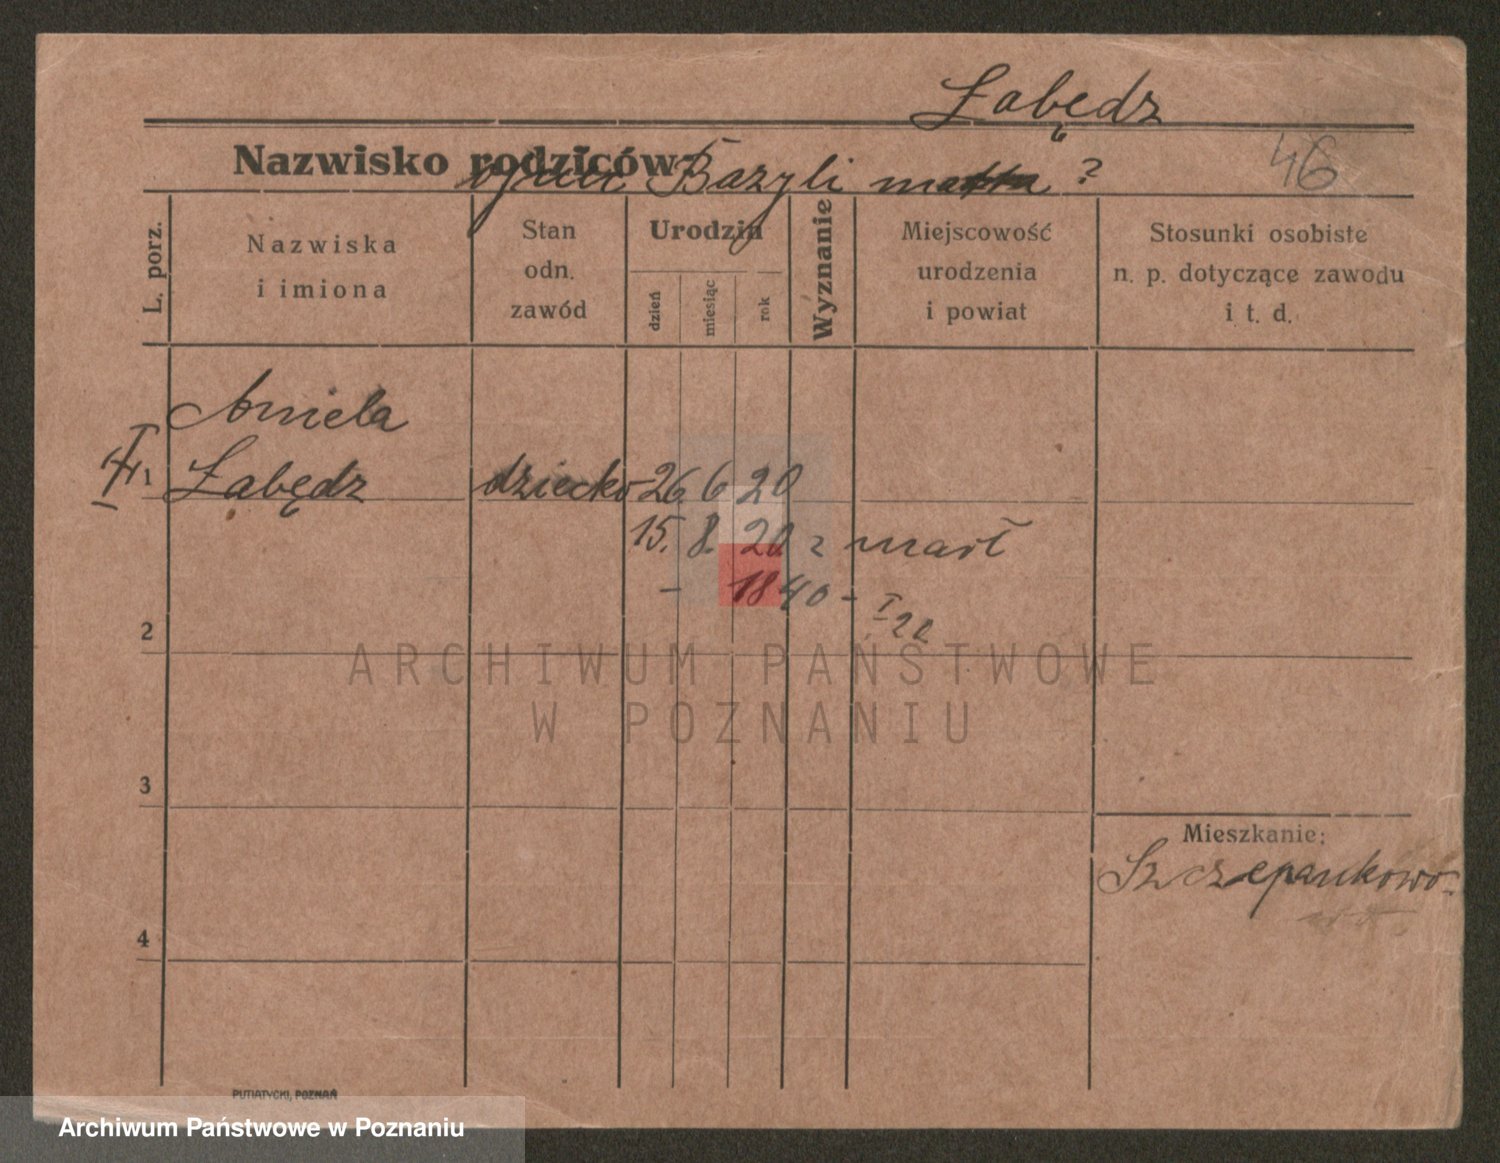 Łabędź
Nazwisko rodziców:
ojciec Bazyli matka ?
46
L. porz.
Nazwiska
i imiona
Stan
odn.
zawód
Urodzin
dzień
miesiąc
rok
Wyznanie
Miejscowość
urodzenia
i powiat
Stosunki osobiste
n. p. dotyczące zawodu
i t. d.
Aniela
Łabędź dziecko 26 6 20
15. 8. 20 zmarł
- 1840 - I 22
2
ARCHIWUM PAŃSTWOWE
W POZNANIU
3
Mieszkanie:
Szczepankowo
4
PUTIATYCKI, POZNAŃ
Archiwum Państwowe w Poznaniu